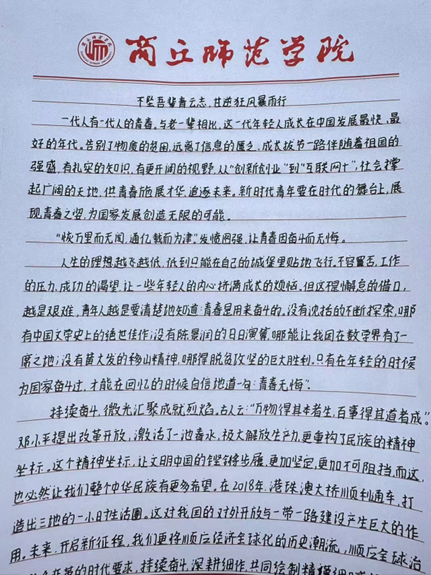 商丘师范学院
不坠吾辈青云志,甘逆狂风暴雨行
一代人有一代人的青春,与老一辈相比,这一代年轻人成长在中国发展最快、最
好的年代。告别了物质的贫困,远离了信息的匮乏,成长拔节一路伴随着祖国的
强盛,有扎实的知识,有更开阔的视野,从“创新创业”到“互联网+”,社会撑
起广阔的天地,供青春施展才华、追逐未来。新时代青年要在时代的舞台上,展
现青春之姿,为国家发展创造无限的可能。
“恢万里而无阂,通亿载而为津。”发愤图强,让青春因奋斗而无悔。
人生的理想越飞越低,低到只能在自己的城堡里贴地飞行。不容置否,工作
的压力,成功的渴望,让一些年轻人的内心挤满成长的烦恼,但这不懈怠的借口,
越是艰难,青年人越是要清楚地知道:青春是用来奋斗的,没有沈括的不断探索,哪
有中国文学史上的绝世佳作;没有陈景润的日日演算,哪能让我国在数学界有了一
席之地;没有黄大发的移山精神,哪得脱贫攻坚的巨大胜利,只有在年轻的时候
为国家奋斗过,才能在回忆的时候自信地道一句:青春无悔”。
持续奋斗,微光汇聚成就烈焰。古人云:“万物得其本者生,百事得其道者成”。
邓小平提出改革开放,激活了一池春水,极大解放生产力,更重构了民族的精神
坐标。这个精神坐标,让文明中国的铿锵步履,更加坚定,更加不可阻挡。而这,
也必然让我们整个中华民族有更多希望。在2018年,港珠澳大桥顺利通车,打
造出三地的一小时生活圈。这对我国的对外开放与一带一路建设产生巨大的作
用。未来,开启新征程,我们更将顺应经济全球化的历史潮流,顺应全球治
的时代要求,持续奋斗,深耕细作,共同绘制精